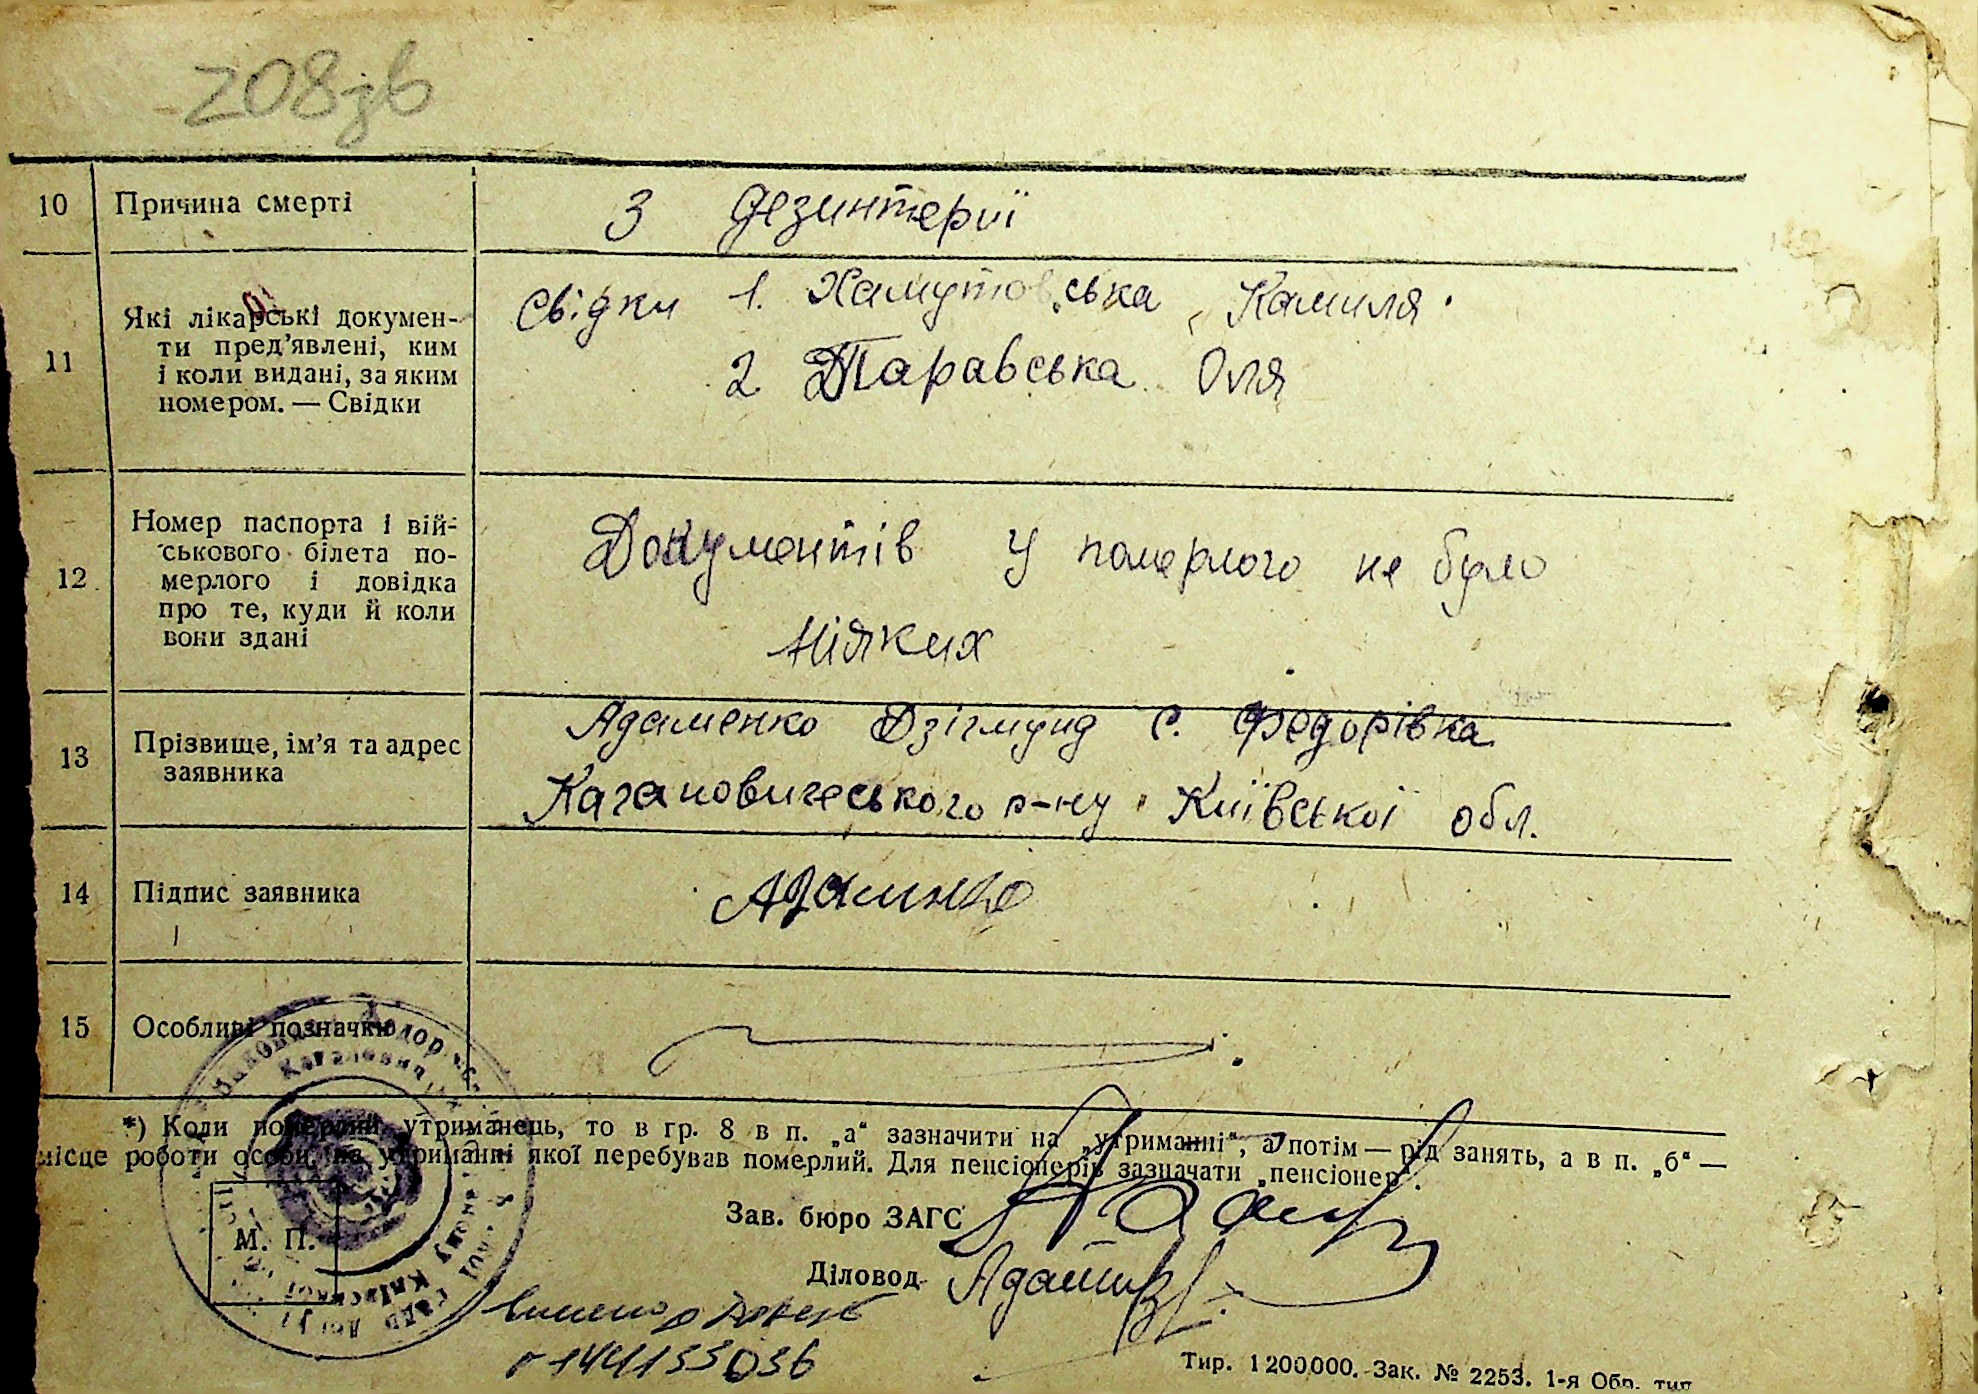 208зв
10 Причина смерті
З Дезинтерії
11 Які лікарські докумен-
ти пред'явлені, ким
і коли видані, за яким
номером. — Свідки
Свідки 1. Хамутовська Камиля.
2 Таравська Оля
12 Номер паспорта і вій-
ськового білета по-
мерлого і довідка
про те, куди й коли
вони здані
Документів у померлого не було
ніяких
13 Прізвище, ім'я та адрес
заявника
Адаменко Дзігмунд с. Федорівка
Кагановичеського р-ну Київської обл.
14 Підпис заявника
15 Особливі позначки
*) Коли померлий утриманець, то в гр. 8 в п. „а“ зазначити на „утриманні“, а потім — рід занять, а в п. „б“ —
місце роботи особи, на утриманні якої перебував померлий. Для пенсіонерів зазначати „пенсіонер“.
Зав. бюро ЗАГС
М. П.
Діловод
Тир. 1200000. Зак. № 2253. 1-я Обр. тип